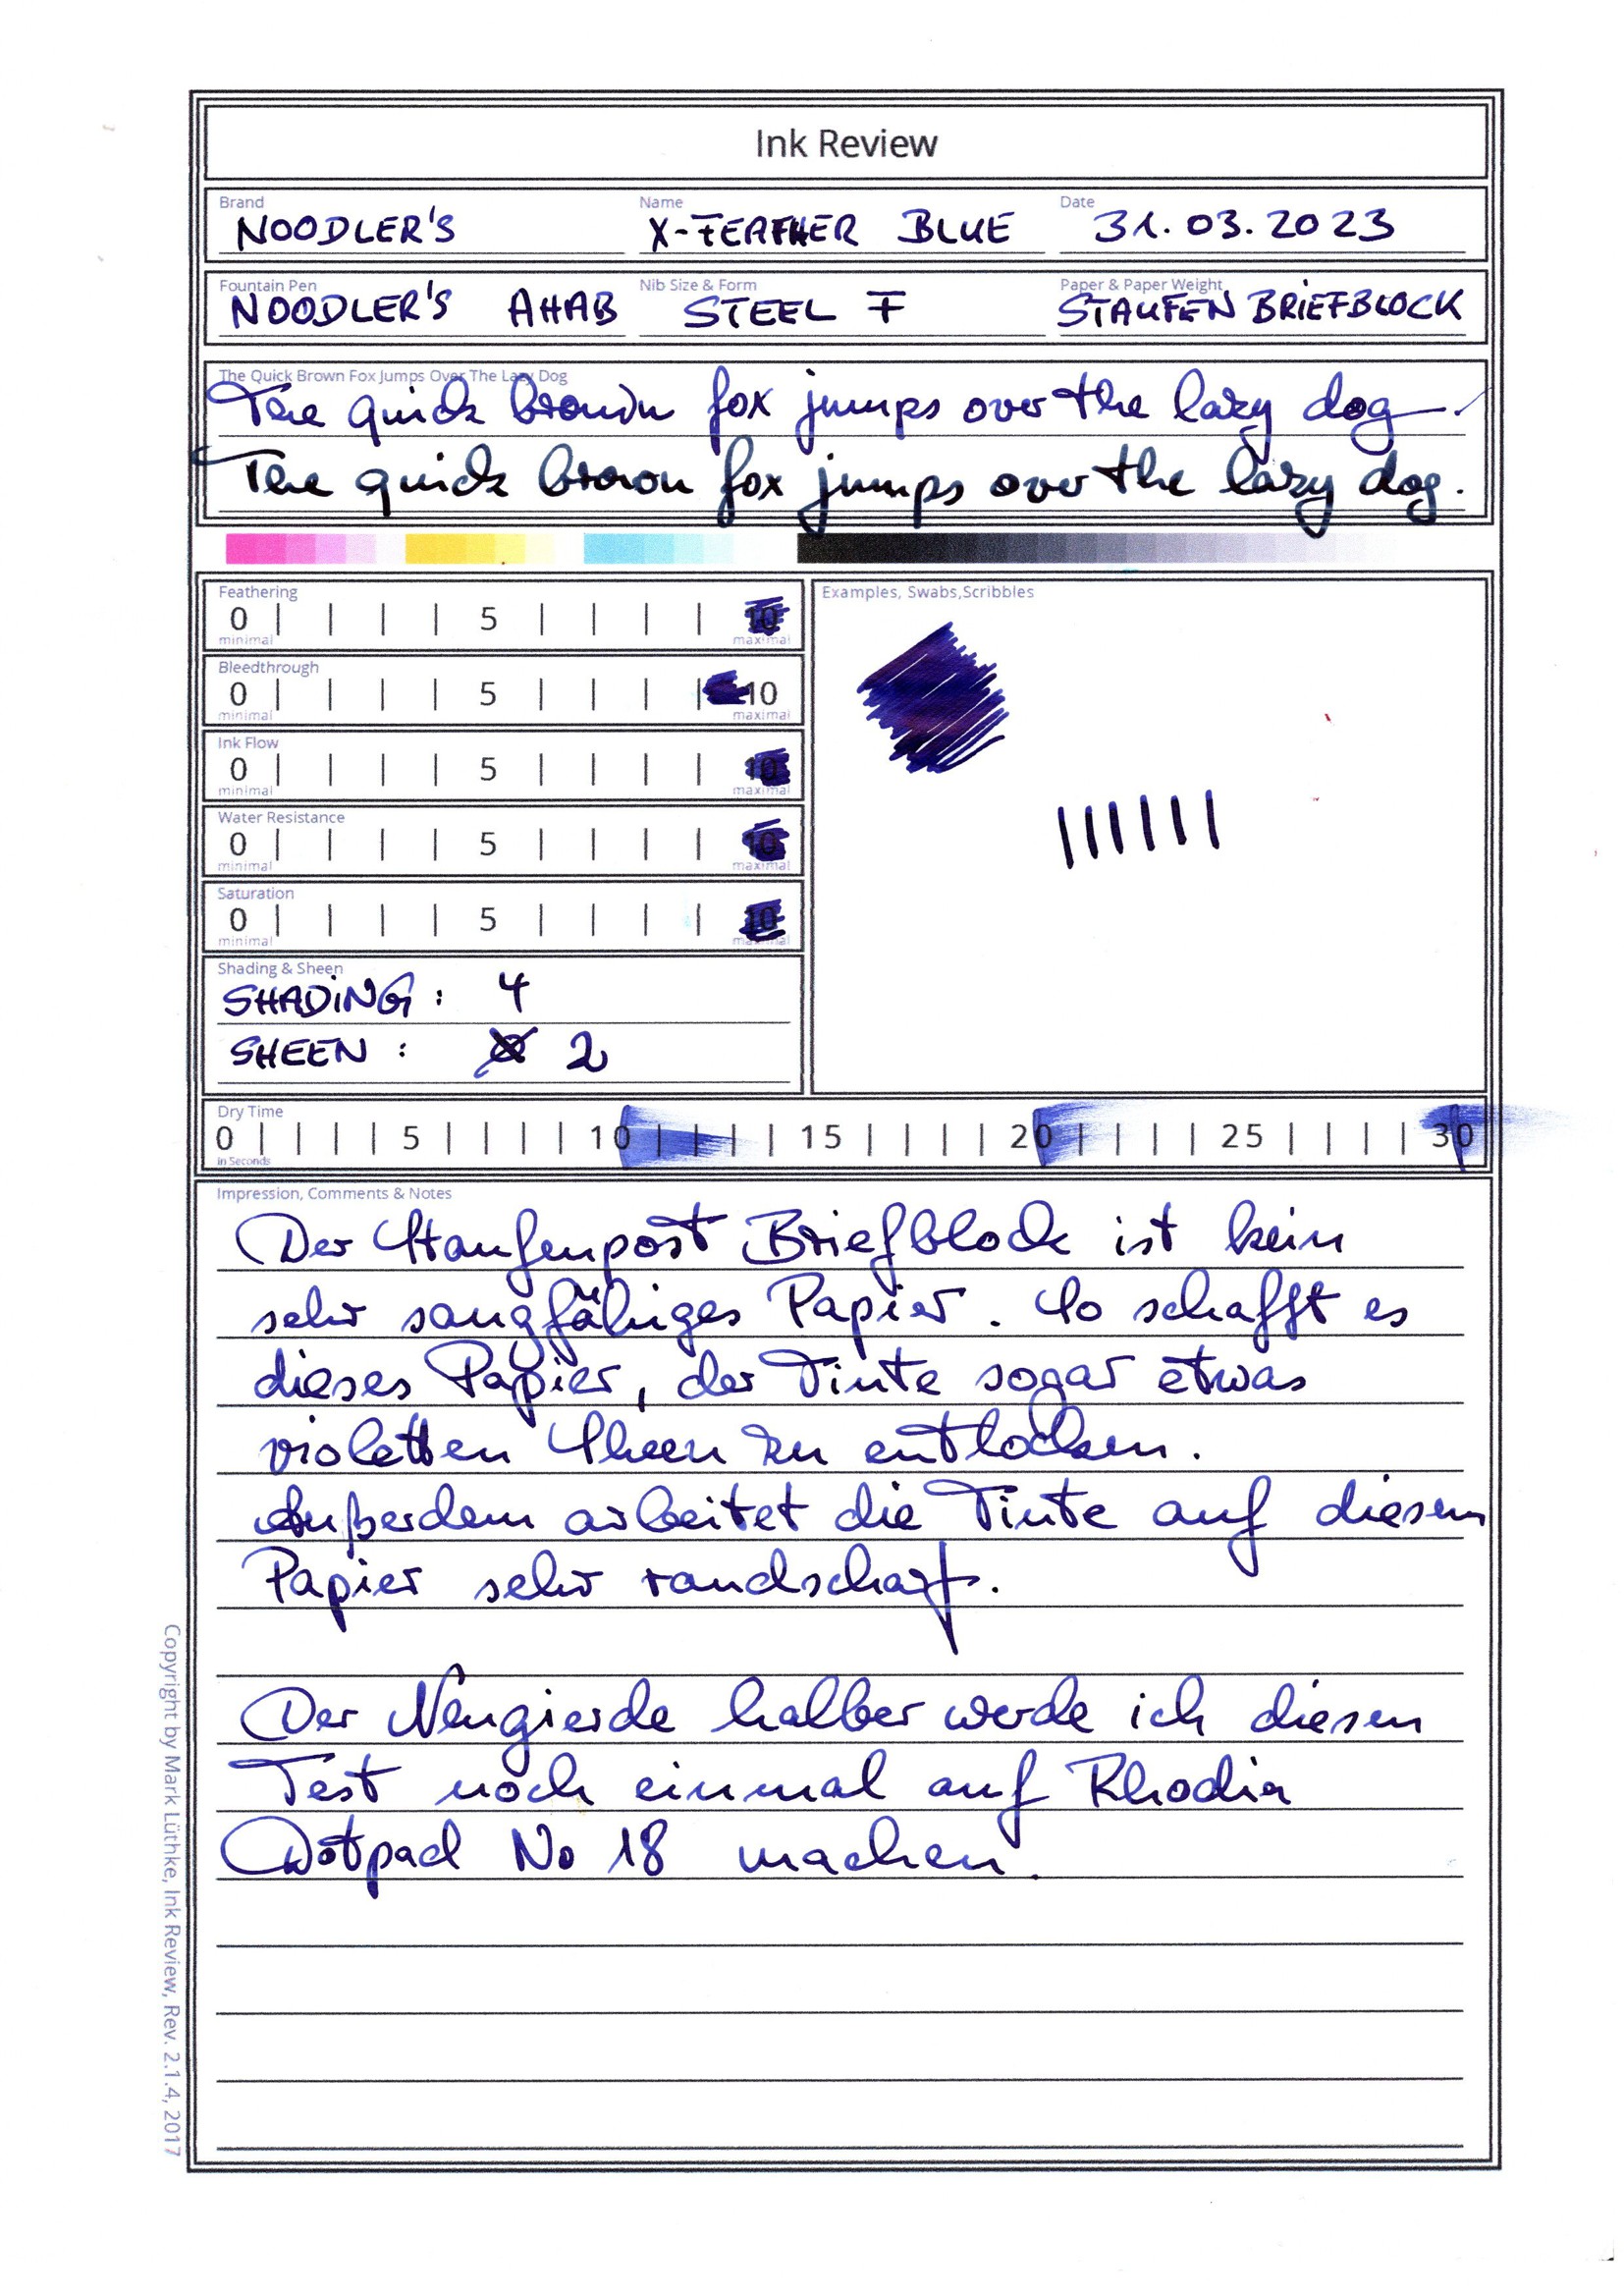 Ink Review
Brand
NOODLER'S
Name
X-FEATHER BLUE
Date
31.03.2023
Fountain Pen
NOODLER'S AHAB
Nib Size & Form
STEEL F
Paper & Paper Weight
STAUFEN BRIEFBLOCK
The Quick Brown Fox Jumps Over The Lazy Dog
The quick brown fox jumps over the lazy dog.
The quick brown fox jumps over the lazy dog.
Feathering
0 | | | | 5 | | | | 10
minimal maximal
Bleedthrough
0 | | | | 5 | | | | 10
minimal maximal
Ink Flow
0 | | | | 5 | | | | 10
minimal maximal
Water Resistance
0 | | | | 5 | | | | 10
minimal maximal
Saturation
0 | | | | 5 | | | | 10
minimal maximal
Shading & Sheen
SHADING : 4
SHEEN : 2
Examples, Swabs,Scribbles
Dry Time
0 | | | | 5 | | | | 10 | | | | 15 | | | | 20 | | | | 25 | | | | 30
in Seconds
Impression, Comments & Notes
Der Staufenpost Briefblock ist kein
sehr saugfähiges Papier. So schafft es
dieses Papier, der Tinte sogar etwas
violetten Sheen zu entlocken.
Außerdem arbeitet die Tinte auf diesem
Papier sehr randscharf.
Der Neugierde halber werde ich diesen
Test noch einmal auf Rhodia
Dotpad No 18 machen.
Copyright by Mark Lüthke, Ink Review, Rev. 2.1.4, 2017